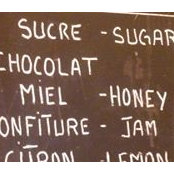 SUCRE - SUGAR
CHOCOLAT
MIEL - HONEY
ONFITURE - JAM
CITRON - LEMON